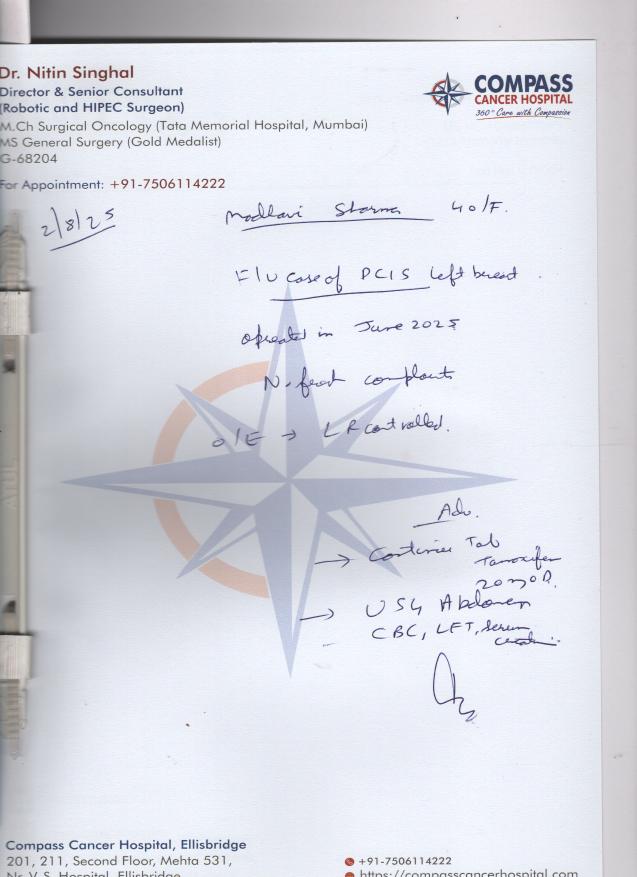 Dr. Nitin Singhal
Director & Senior Consultant
(Robotic and HIPEC Surgeon)
M.Ch Surgical Oncology (Tata Memorial Hospital, Mumbai)
MS General Surgery (Gold Medalist)
G-68204
For Appointment: +91-7506114222
COMPASS
CANCER HOSPITAL
360° Care with Compassion
2/8/25
Madhavi Sharma 40/F.
F/U case of DCIS left breast.
operated in June 2025
N. fresh complaints
O/E → LR controlled.
Adv.
→ Continue Tab
Tamoxifen
20 OD.
→ USG Abdomen
CBC, LFT, Serum
ATUL
Compass Cancer Hospital, Ellisbridge
201, 211, Second Floor, Mehta 531,
Nr. V. S. Hospital, Ellisbridge
+91-7506114222
https://compasscancerhospital.com